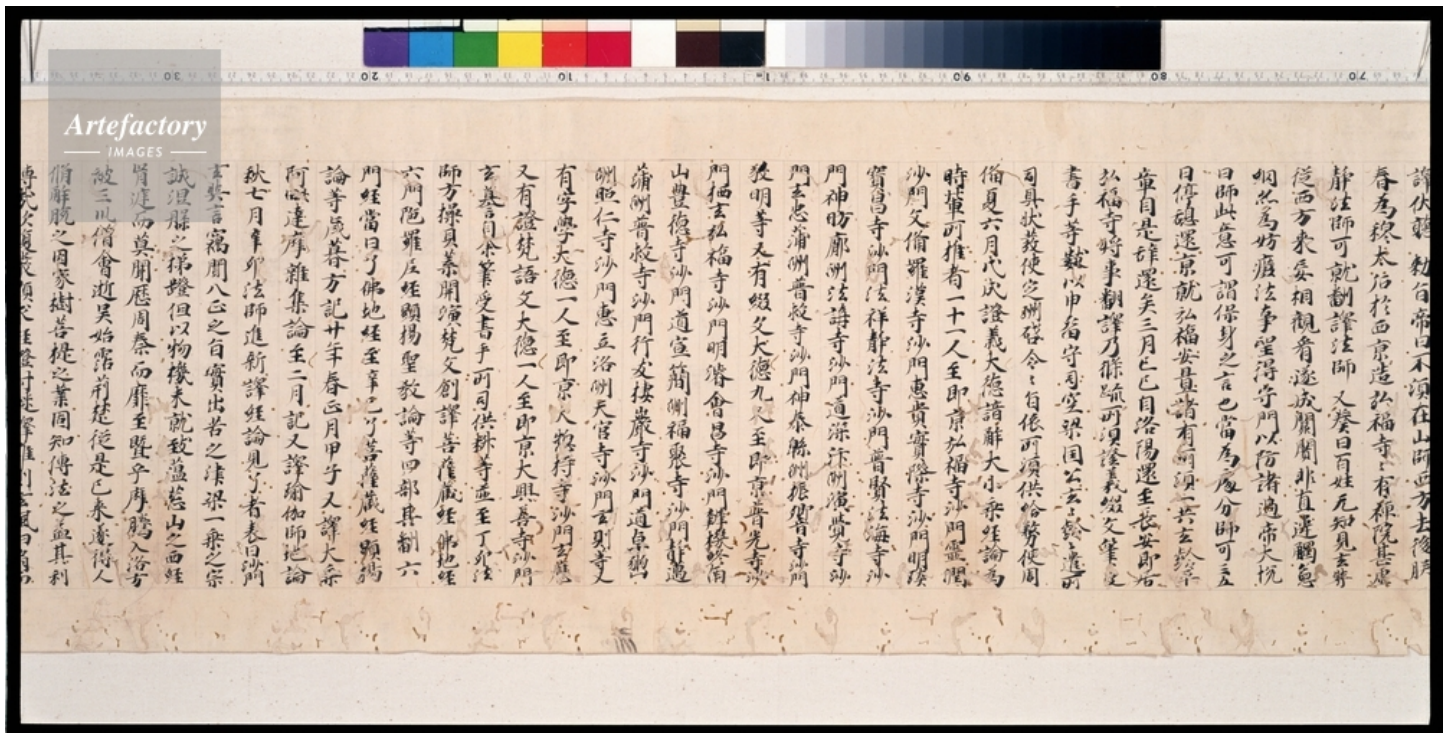 譯伏聽 勅旨帝曰不須在山師西方去後朕
奉為穆太后於西京造弘福寺〻有禪院甚虛
靜法師可就翻譯法師又奏曰百姓无知見玄奘
從西方來妄相觀看遂成闤闠非直違觸憲
網亦為妨癈法事望得守門以防諸過帝大悅
曰師此意可謂保身之言也當為處分師可三五
日停憩還京就弘福安置諸有所須一共玄齡平
章自是辞還矣三月己巳自洛陽還至長安即居
弘福寺將事翻譯乃條疏所須證義綴文筆受
書手等數以申留守司空梁国公玄〻齡〻遣所
司具狀發使定州啓令〻旨依所須供給務使周
俻夏六月戊戌證義大德諳解大小乘經論為
時輩所推者一十一人至即京弘福寺沙門靈潤
沙門文俻羅漢寺沙門惠貴實際寺沙門明琰
寶昌寺沙門法祥静法寺沙門普賢法海寺沙
門神昉廓州法講寺沙門道深汴州演覺寺沙
門玄忠蒲州普救寺沙門神泰綿州振響寺沙門
敬明等又有綴文大德九人至即京普光寺沙
門栖玄弘福寺沙門明濬會昌寺沙門辯機終南
山豊德寺沙門道宣簡州福聚寺沙門静邁
蒲州普救寺沙門行友棲巖寺沙門道卓豳
州照仁寺沙門惠立洛州天宮寺沙門玄則等又
有字學大德一人至即京大揔持寺沙門玄應
又有證梵語文大德一人至即京大興善寺沙門
玄謩自余筆受書手所司供料等並至丁卯法
師方操貝葉開演梵文創譯菩薩藏經佛地經
六門陁羅尼經顯揚聖教論等四部其翻六
門經當日了佛地經至辛巳了菩薩藏經顯揚
論等歲暮方記廿年春正月甲子又譯大乘
阿毗達摩雜集論至二月記又譯瑜伽師地論
秋七月辛卯法師進新譯經論見了者表曰沙門
玄奘言竊聞八正之旨實出苦之津梁一乘之宗
誠涅槃之梯蹬但以物機未就致蘊葱山之西經
胥庭而莫聞歷周秦而靡至暨乎摩騰入洛方
被三川僧會逝吳始霑荊楚從是已來遂得人
脩解脫之因家樹菩提之業固知傳法之益其利
Artefactory
IMAGES